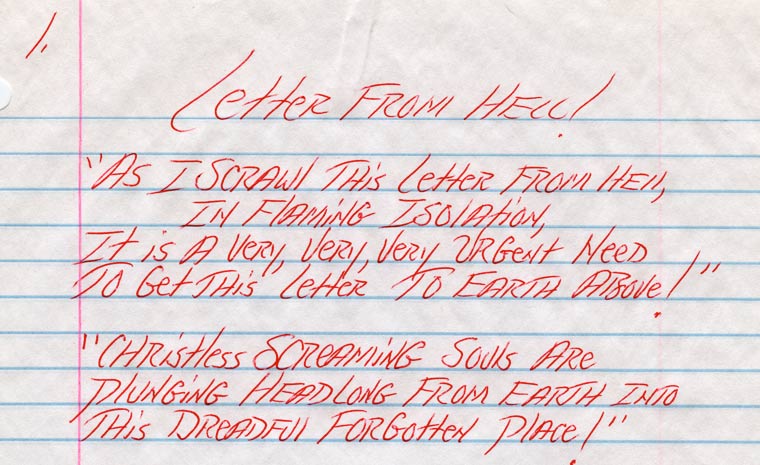 1.
Letter From Hell!
"As I Scrawl This Letter From Hell,
In Flaming Isolation,
It is A Very, Very, Very Urgent Need
To Get This Letter To Earth Above!"
"Christless Screaming Souls Are
Plunging Headlong From Earth Into
This Dreadful Forgotten Place!"